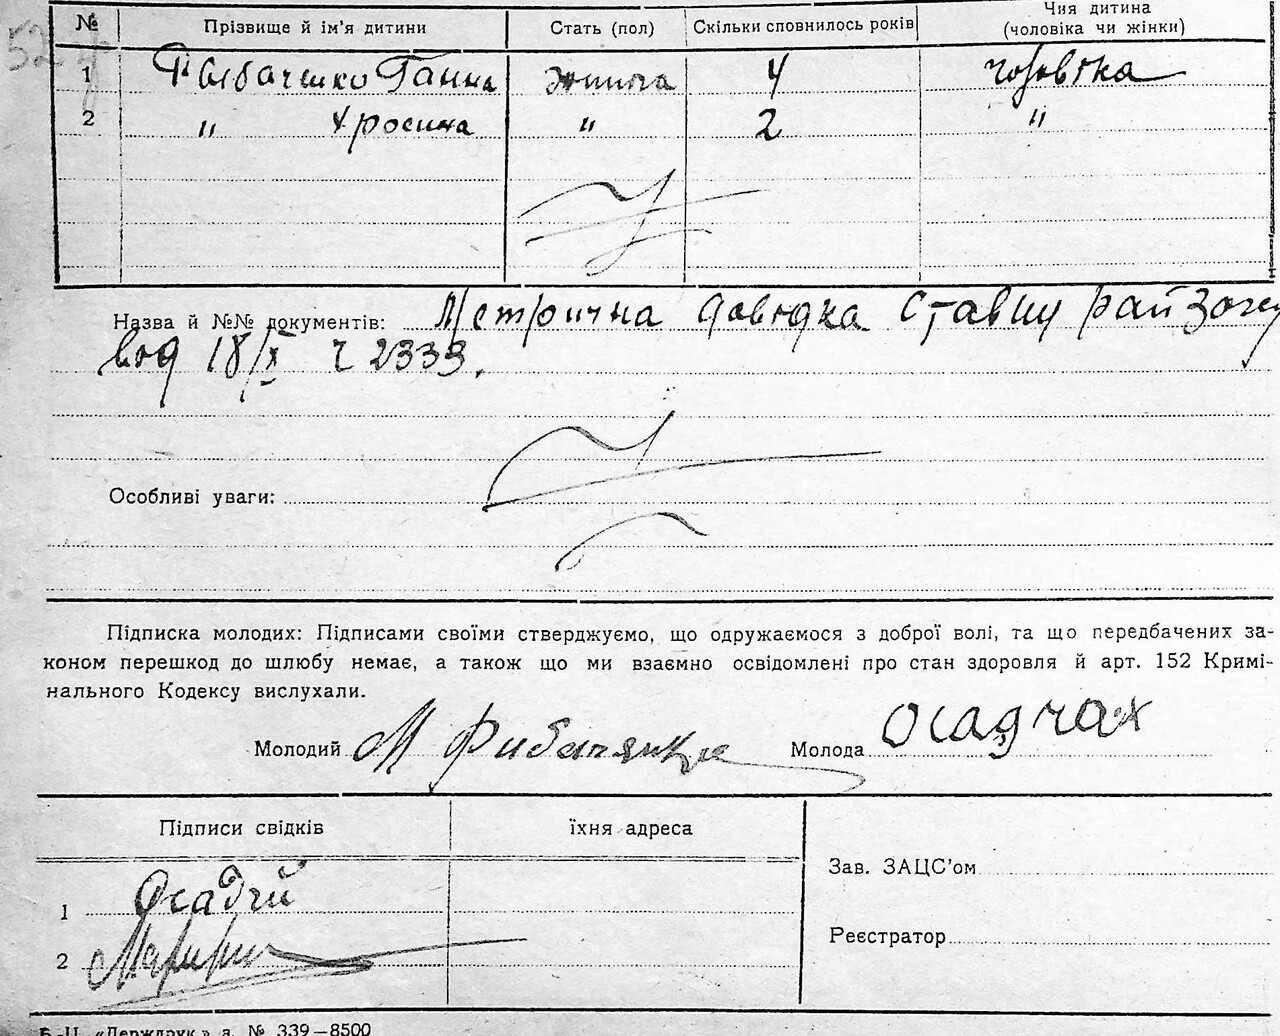 № Прізвище й ім'я дитини Стать (пол) Скільки сповнилось років Чия дитина (чоловіка чи жінки)
1 Рыбаченко Ганна жиноча 4 чоловіка
2 " Хросина " 2 "
Назва й №№ документів: Метрична довидка Ставищ
вид 18/X Ч 2333.
Особливі уваги:
Підписка молодих: Підписами своїми стверджуємо, що одружаємося з доброї волі, та що передбачених за-
коном перешкод до шлюбу немає, а також що ми взаємно освідомлені про стан здоровля й арт. 152 Кримі-
нального Кодексу вислухали.
Молодий М Рибаченко Молода Осадчах
Підписи свідків їхня адреса
Зав. ЗАЦС'ом
1 Осадчий
Реєстратор
2
Б.-Ц. «Держдрук» з. № 339—8500